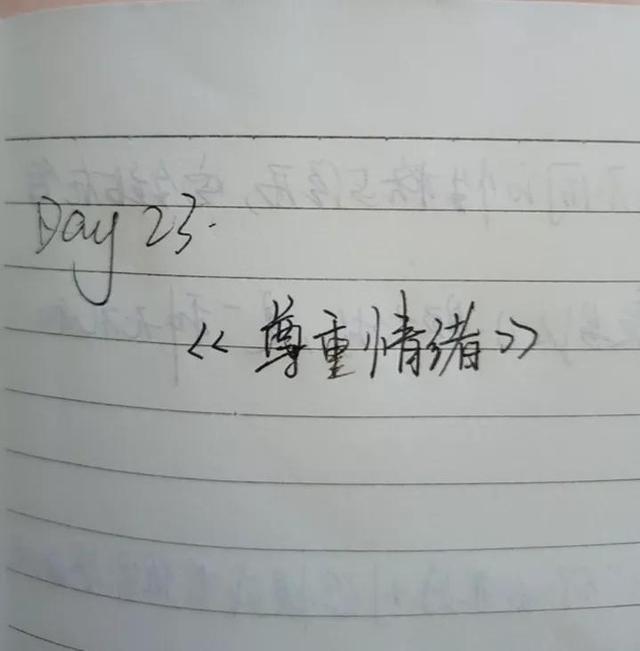 Day 23.
<<尊重情绪>>